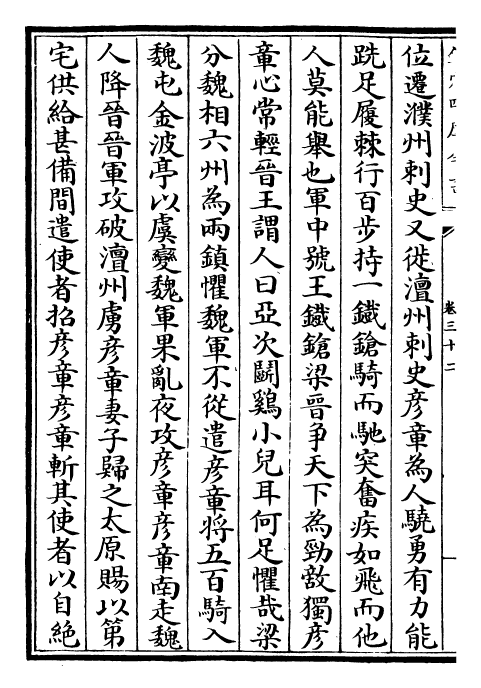 卷三十二
位遷濮州刺史又徙澶州刺史彦章為人驍勇有力能
跣足履棘行百步持一鐵鎗騎而馳突奮疾如飛而他
人莫能舉也軍中號王鐵鎗梁晉争天下為勁敵獨彦
章心常輕晉王謂人曰亞次鬭鷄小兒耳何足懼哉梁
分魏相六州為兩鎮懼魏軍不從遣彦章將五百騎入
魏屯金波亭以虞變魏軍果亂夜攻彦章彦章南走魏
人降晉晉軍攻破澶州虜彦章妻子歸之太原賜以第
宅供給甚備間遣使者招彦章彦章斬其使者以自絶